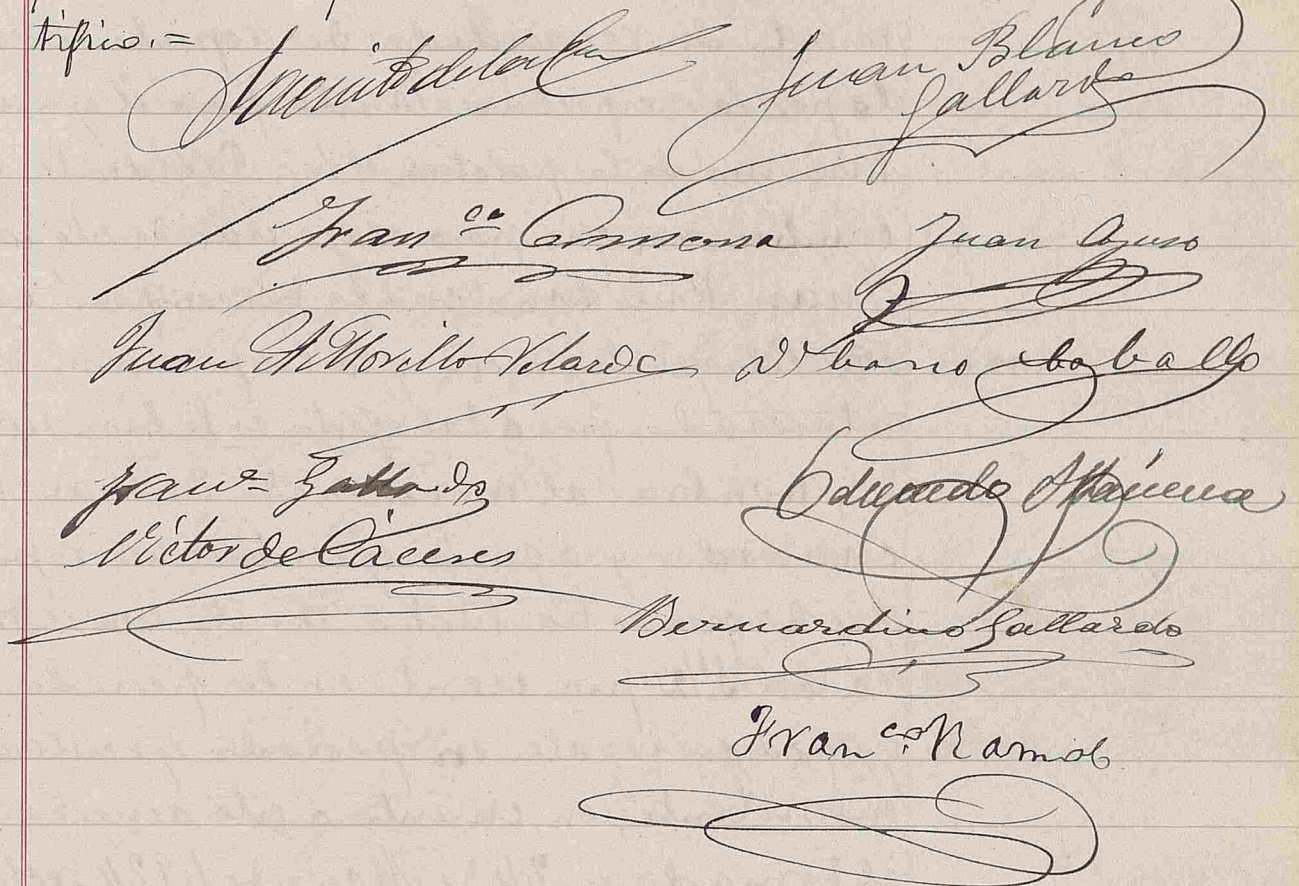 tifico.=
Jacinto de la
Juan Blanco
Gallardo
Fran.co Carmona
Juan Ayuso
Juan A. Morillo Velarde
Urbano Caballo
Fran.co Gallardo
Eduardo
Victor de Cáceres
Bernardino Gallardo
Fran.co Ramos